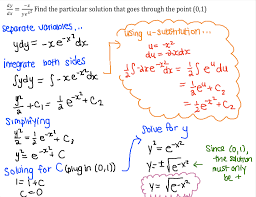 dy/dx = -x/ye^x² Find the particular solution that goes through the point (0,1)
Separate variables...
ydy = -xe^-x² dx
integrate both sides
∫ydy = ∫-xe^-x² dx
y²/2 + C₁ = ½e^-x² + C₂
Simplifying
y²/2 = ½e^-x² + C₃
y² = e^-x² + C
Solving for C (plug in (0,1))
1 = 1 + C
C = 0
using u-substitution...
u = -x²
du = -2xdx
½∫-2xe^-x² dx = ½∫e^u du
= ½e^u + C₂
= ½e^-x² + C₂
Solve for y
y² = e^-x²
y = ±√e^-x²
y = √e^-x²
Since (0,1),
the solution
must only
be +